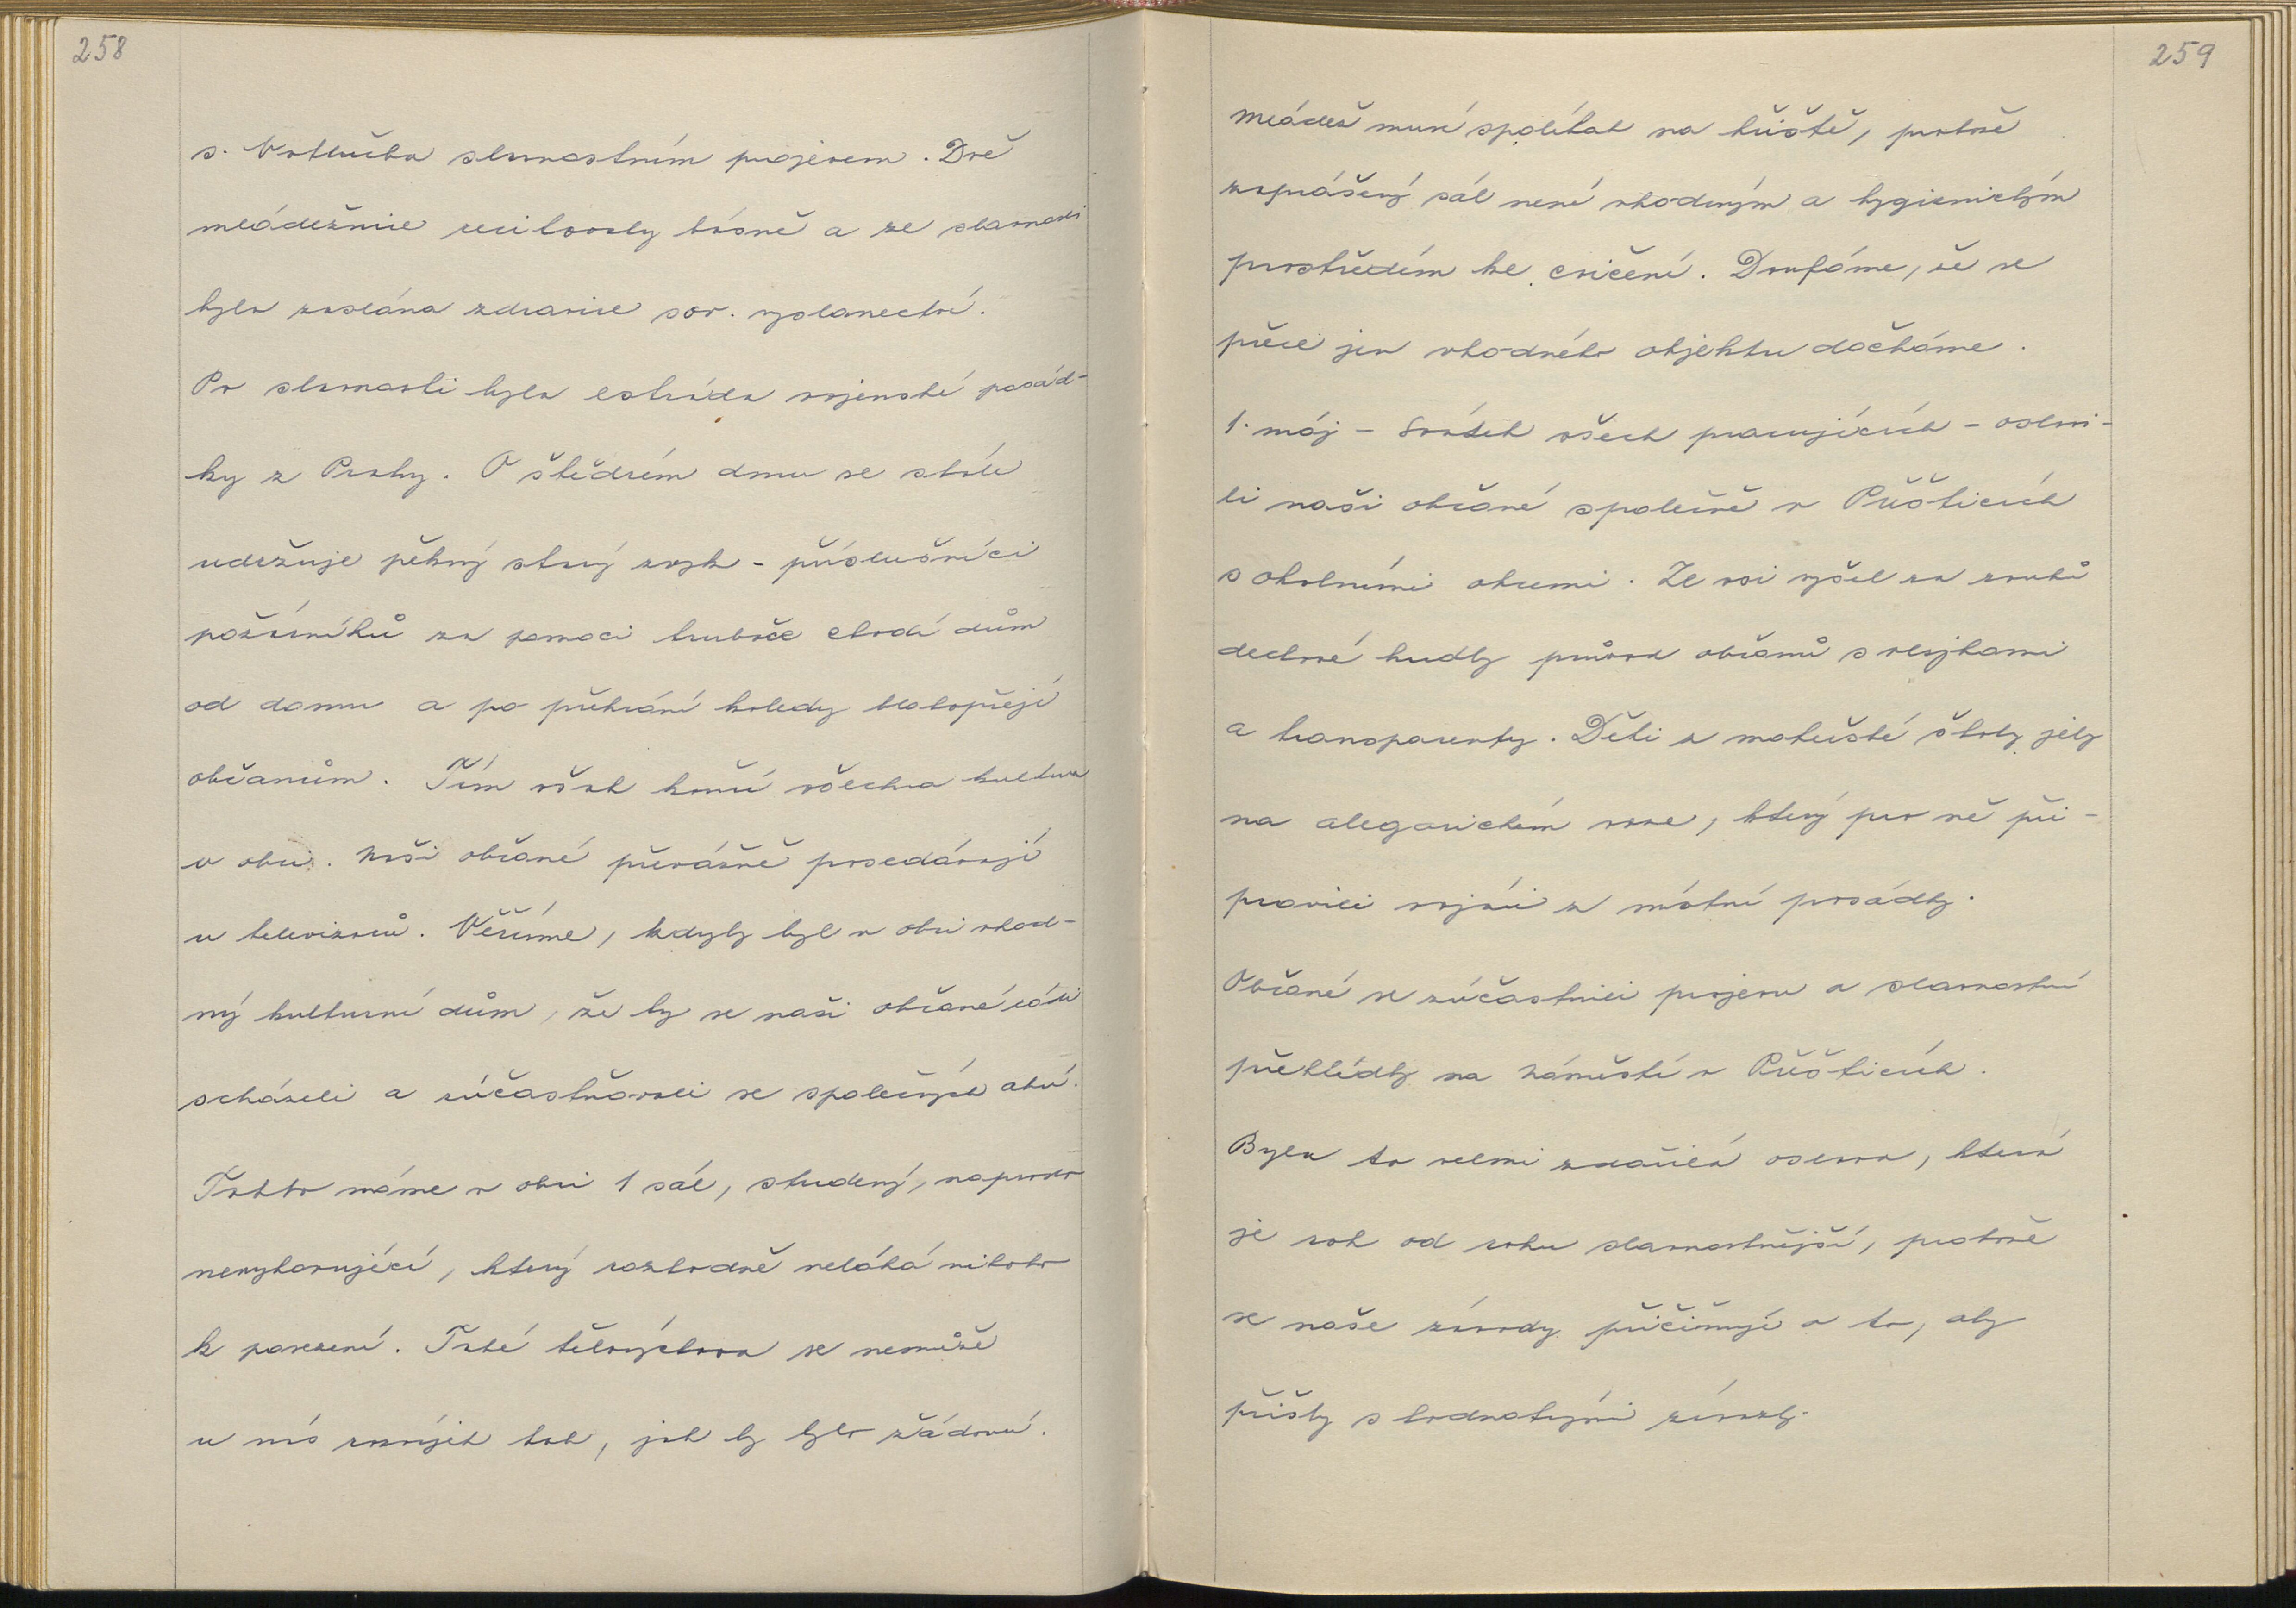 258
s. Votlučka slavnostním projevem. Dvě
mládežnice recitovaly básně a ze slavnosti
byla zaslána zdravice sov. vyslanectví.
Po slavnosti byla estráda vojenské posád-
ky z Prahy. O štědrém dnu se stále
udržuje pěkný starý zvyk - příslušníci
požárníků za pomoci trubače chodí dům
od domu a po přehrání koledy blahopřejí
občanům. Tím však končí všechna kultura
v obci. Naši občané převážně prosedávají
u televizorů. Věříme, kdyby byl v obci vhod-
ný kulturní dům, že by se naši občané rádi
scházeli a zúčastňovali se společných akcí.
Takto máme v obci 1 sál, studený, naprosto
nevyhovující, který rozhodně neláká nikoho
k posezení. Také tělovýchova se nemůže
u nás rozvíjet tak, jak by bylo žádoucí.
259
Mládež musí spoléhat na hřiště, protože
zaprášený sál není vhodným a hygienickým
prostředím ke cvičení. Doufáme, že se
přece jen vhodného objektu dočkáme.
1. máj - Svátek všech pracujících - oslavi-
li naši občané společně v Přešticích
s okolními obcemi. Ze vsi vyšel za zvuků
dechové hudby průvod občanů s vlajkami
a transparenty. Děti z mateřské školy jely
na alegorickém voze, který pro ně při-
pravili vojáci z místní posádky.
Občané se zúčastnili projevu a slavnostní
přehlídky na náměstí v Přešticích.
Byla to velmi zdařilá oslava, která
je rok od roku slavnostnější, protože
se naše závody přičiňují o to, aby
přišly s hodnotnými závazky.